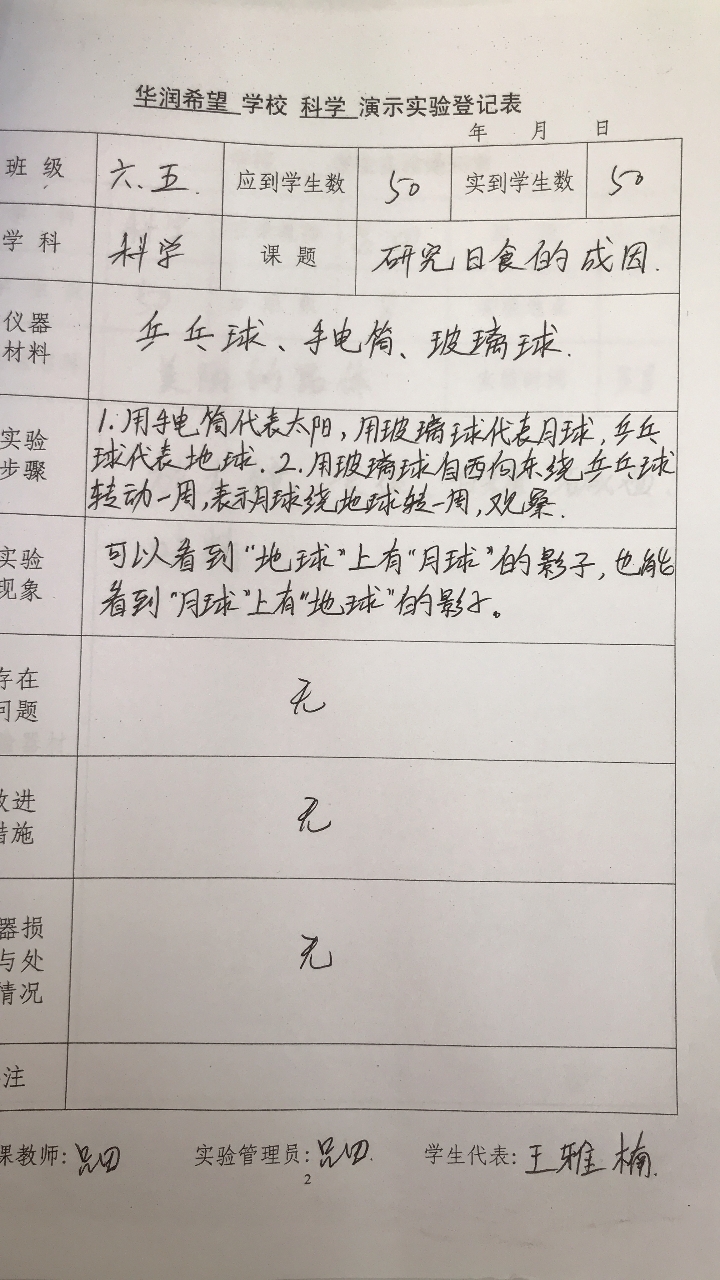 华润希望 学校 科学 演示实验登记表
年 月 日
班 级 六.五. 应到学生数 50 实到学生数 50
学 科 科学 课 题 研究日食的成因.
仪器
材料
乒乓球、手电筒、玻璃球.
实验
步骤
1.用手电筒代表太阳,用玻璃球代表月球,乒乓
球代表地球.2.用玻璃球自西向东绕乒乓球
转动一周,表示月球绕地球转一周,观察.
实验
现象
可以看到“地球”上有“月球”的影子,也能
看到“月球”上有“地球”的影子。
存在
问题
无
改进
措施
无
器损
与处
情况
无
注
课教师: 实验管理员: 学生代表:王雅楠.
2